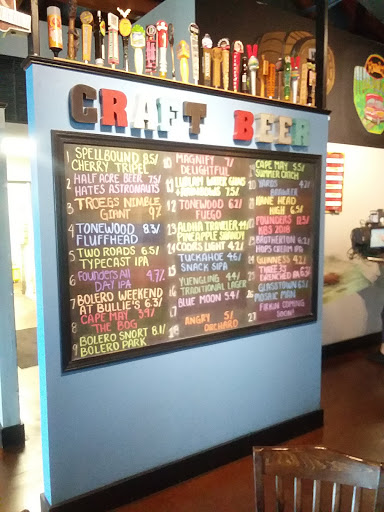 CRAFT BEER
1 SPELLBOUND 8.5/
CHERRY TRIPEL
2 HALF ACRE BEER 7.5/
HATES ASTRONAUTS
3 TROEGS NIMBLE
GIANT 9%
4 TONEWOOD 8.3/
FLUFFHEAD
5 TWO ROADS 6.5/
TYPECAST IPA
6 FOUNDERS ALL 4.7/
DAY IPA
7 BOLERO WEEKEND
AT BULLIE'S 6.3/
8 CAPE MAY 3.9/
THE BOG
9 BOLERO SNORT 8.1/
BOLERO PARK
10 MAGNIFY 7/
DELIGHTFUL
12 TONEWOOD 6.2/
FUEGO
13 ALOHA TRAVELER 4.4/
PINEAPPLE SHANDY
14 COORS LIGHT 4.2/
15 TUCKAHOE 4.6/
SNACK SIPA
16 YUENGLING 4.4/
TRADITIONAL LAGER
17 BLUE MOON 5.4/
18 ANGRY 5/
ORCHARD
CAPE MAY 5.5/
SUMMER CATCH
YARDS 4.2/
BRAWLER
KANE HEAD
HIGH 6.5/
FOUNDERS
KBS 2018
BROTHERTON 6.2/
HOPS CREAM IPA
GUINNESS 4.2/
THREE 3'S
DRENCHED
GLASSTOWN 6.1/
MOSAIC MAN
27 FIRKIN COMING
SOON!